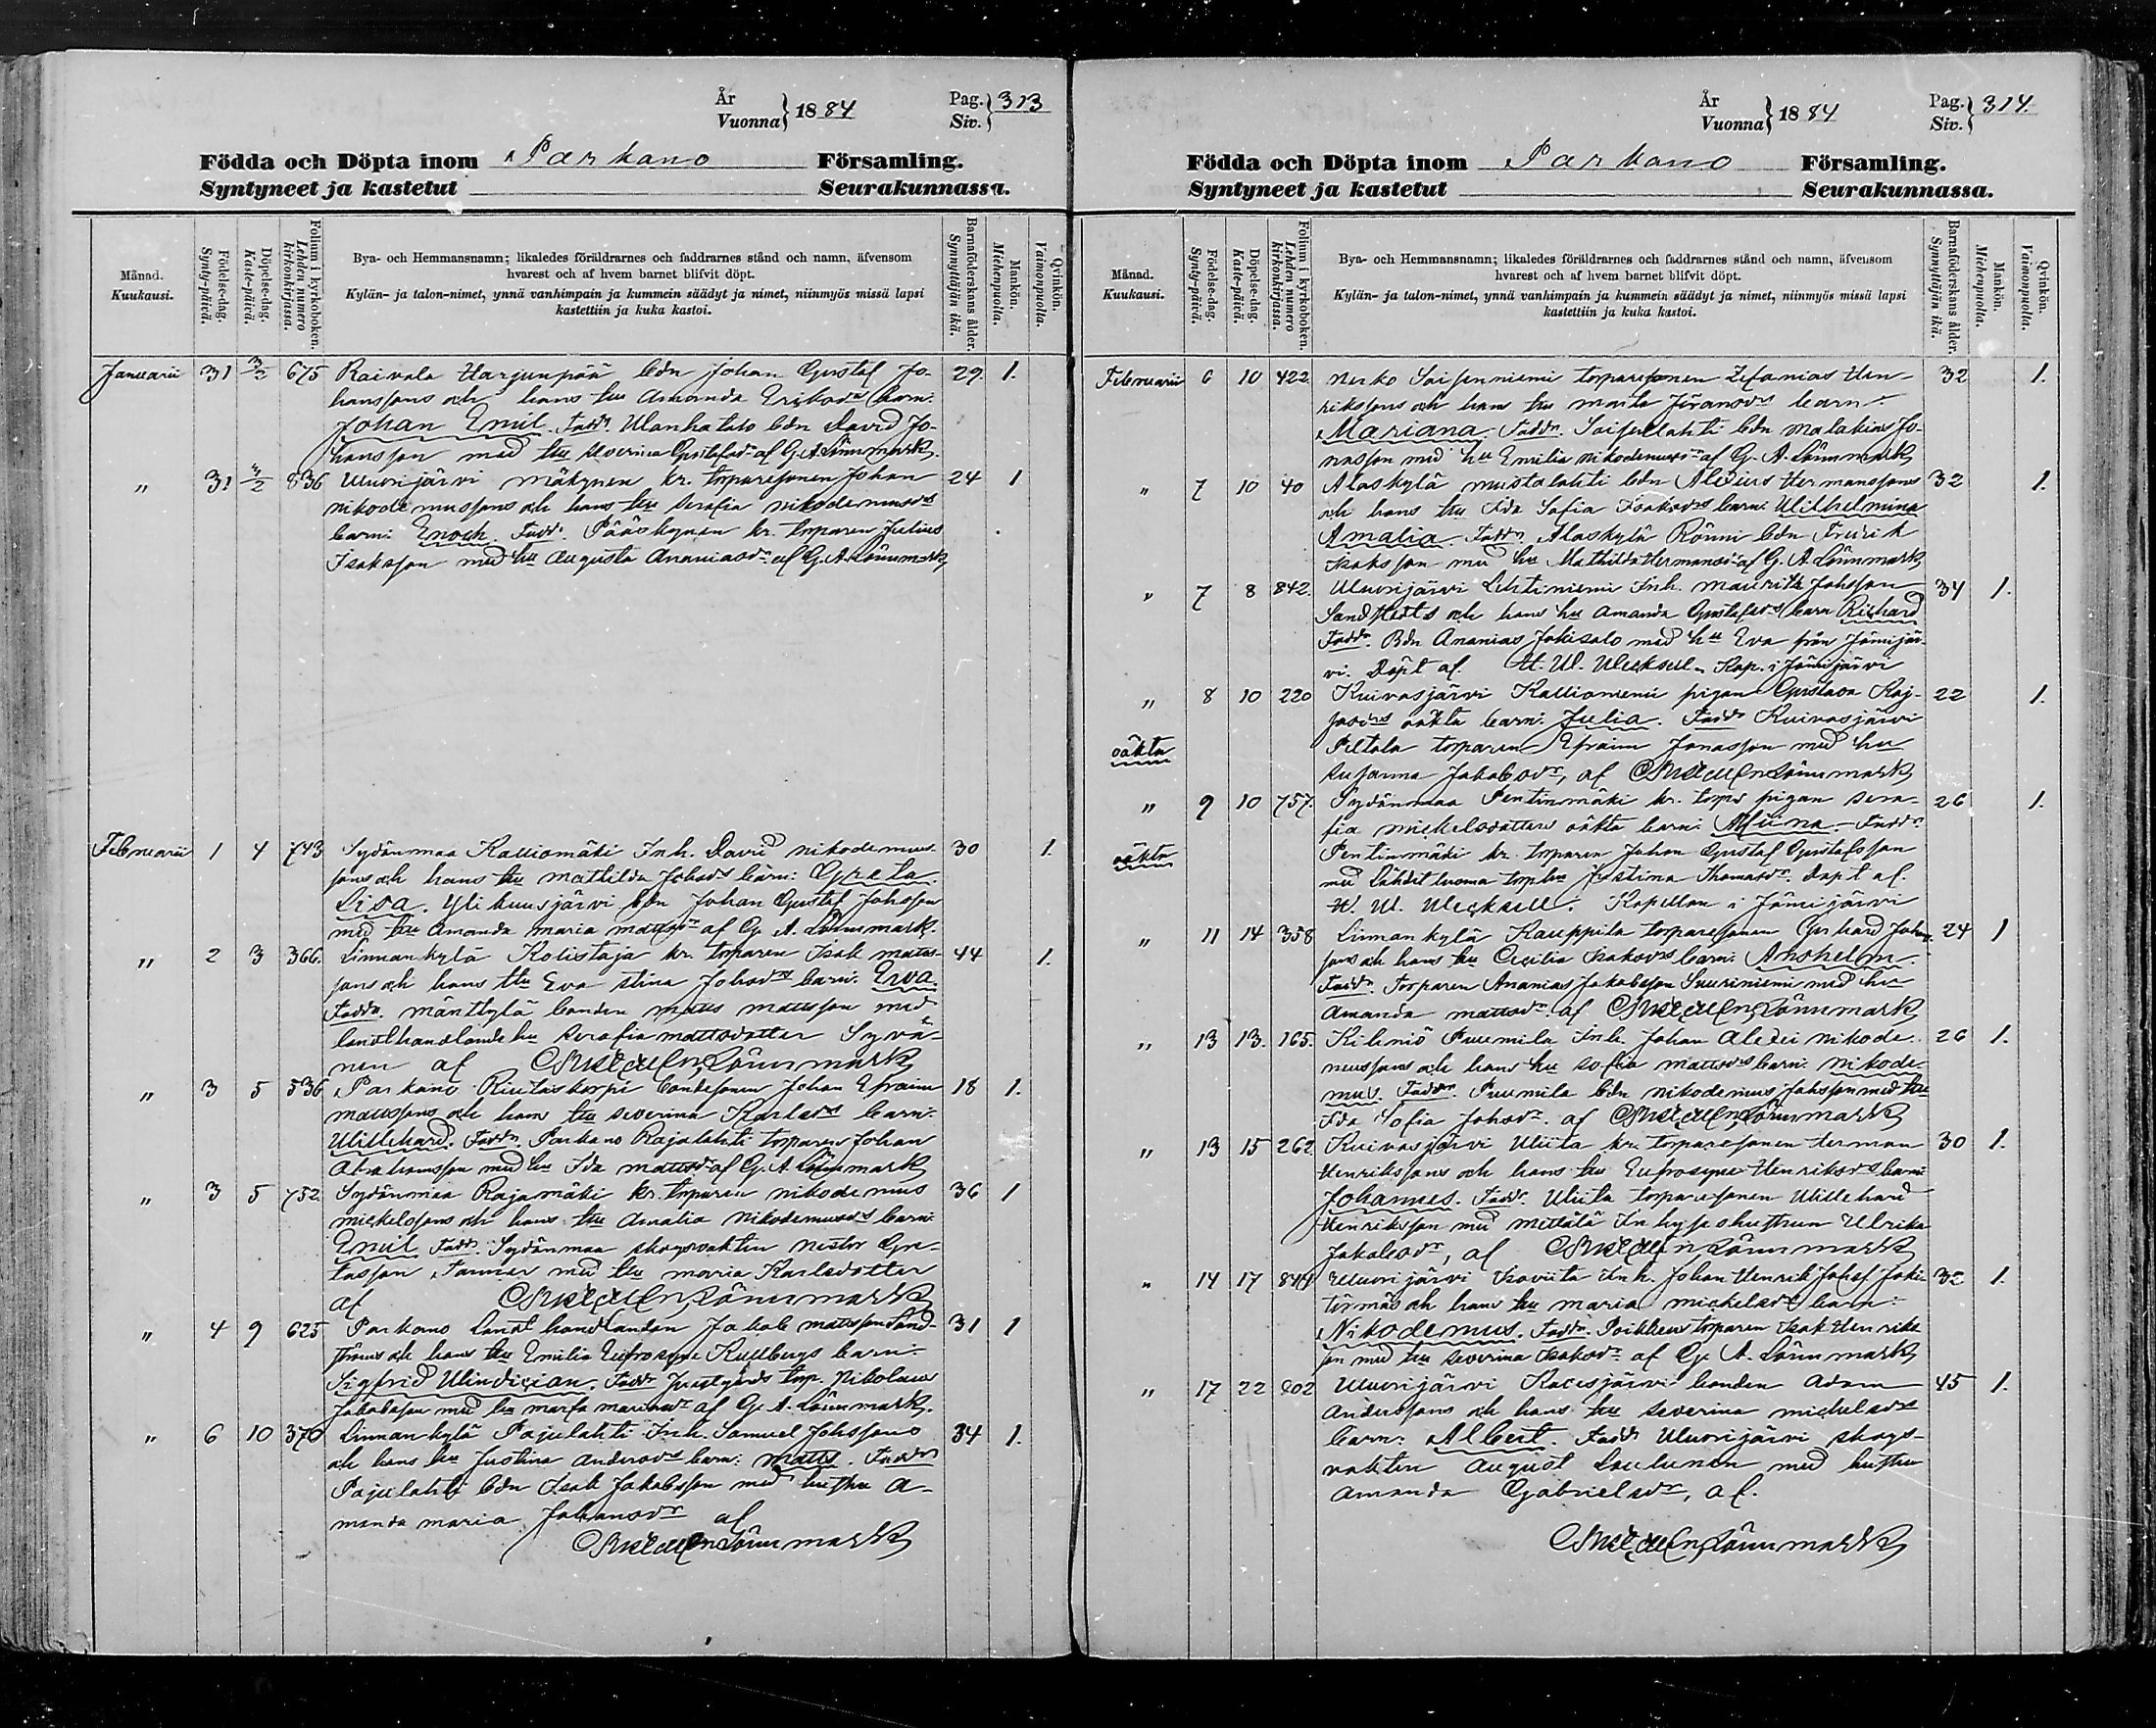 År
Vuonna } 1884
Pag.
Siv. } 313
Födda och Döpta inom Parkano Församling.
Syntyneet ja kastetut Seurakunnassa.
Månad.
Kuukausi.
Födelse-dag.
Synty-päivä.
Döpelse-dag.
Kaste-päivä.
Folium i kyrkoboken.
Lehden numero kirkonkirjassa.
Bya- och Hemmansnamn; likaledes föräldrarnes och faddrarnes stånd och namn, äfvensom
hvarest och af hvem barnet blifvit döpt.
Kylän- ja talon-nimet, ynnä vanhimpain ja kummein säädyt ja nimet, niinmyös missä lapsi
kastettiin ja kuka kastoi.
Barnaföderskans ålder.
Synnyttäjän ikä.
Mankön.
Miehenpuolia.
Qvinkön.
Vaimonpuolia.
Januarii 31 3/2 675 Raivala Harjunpää bdn Johan Gustaf Jo- 29. 1.
hanssons och hans hu Amanda Eriksdrs barn:
Johan Emil. Fadd. Ulanhatalo bdn David Jo-
hansson med hu Severina Gustafsdr af G. A. Lönnmark.
" 31 4/2 836 Wuorijärvi Mäkynen kr. torparesonen Johan 24 1
Nikodemussons och hans hu Serafia Nikodemusdrs
barn: Enoch. Fadd. Pääskynen kr. torparen Julius
Isaksson med hu Augusta Ananiasdr af G. A. Lönnmark
Februarii 1 4 743 Sydänmaa Kalliomäki Inh. David Nikodemus- 30 1.
sons och hans hu Mathilda Johsdrs barn: Greta
Lisa. Ylikuusjärvi bdn Johan Gustaf Johsson
med hu Amanda Maria Mattsdr af G. A. Lönnmark.
" 2 3 366. Linnankylä Kolistaja kr. torparen Isak Matts- 44 1.
sons och hans hu Eva Stina Johsdrs barn: Eva.
Fadd. Mänttylä bonden Matts Mattsson med
landthandlande hu Serafia Mattsdotter Syvä-
nen af Gust Adolf Lönnmark
" 3 5 536 Parkano Riutaskorpi bondesonen Johan Efraim 18 1.
Mattssons och hans hu Severina Karlsdrs barn:
Willehard. Fadd. Parkano Rajalahti torparen Johan
Abrahamsson med hu Ida Mattsdr af G. A. Lönnmark
" 3 5 752. Sydänmaa Rajamäki kr. torparen Nikodemus 36 1
Mickelssons och hans hu Amalia Nikodemusdrs barn:
Emil Fadd. Sydänmaa skogsvakten Nestor Gus-
tafsson Tammer med hu Maria Karlsdotter
af Gust Adolf Lönnmark
" 4 9 625 Parkano Landthandlanden Jakob Mattsson Sand- 31 1
ströms och hans hu Emilia Eufrosyne Kullbergs barn:
Sigfrid Windician. Fadd. Prestgårds torp. Nikolaus
Jakobsson med hu Marta af G. A. Lönnmark.
" 6 10 370 Linnankylä Pajulahti Inh. Samuel Johssons 34 1.
och hans hu Justina Andersdrs barn: Matts. Fadd
Pajulahti bdn Isak Jakobsson med hustru A-
manda Maria Johansdr af
Gust Adolf Lönnmark
År
Vuonna } 1884
Pag.
Siv. } 314.
Födda och Döpta inom Parkano Församling.
Syntyneet ja kastetut Seurakunnassa.
Månad.
Kuukausi.
Födelse-dag.
Synty-päivä.
Döpelse-dag.
Kaste-päivä.
Folium i kyrkoboken.
Lehden numero kirkonkirjassa.
Bya- och Hemmansnamn; likaledes föräldrarnes och faddrarnes stånd och namn, äfvensom
hvarest och af hvem barnet blifvit döpt.
Kylän- ja talon-nimet, ynnä vanhimpain ja kummein säädyt ja nimet, niinmyös missä lapsi
kastettiin ja kuka kastoi.
Barnaföderskans ålder.
Synnyttäjän ikä.
Mankön.
Miehenpuolia.
Qvinkön.
Vaimonpuolia.
Februarii 6 10 422. Nerko torparesonen Zefanias Hen- 32 1.
rikssons och hans hu Maria barn:
Mariana. Fadd. bdn Malakias Jo-
nasson med hu Emilia Nikodemusdr af G. A. Lönnmark
" 7 10 40 Alaskylä Mustalahti bdn Alexius Hermanssons 32 1.
och hans hu Ida Sofia Isaksdrs barn: Wilhelmina
Amalia. Fadd. Alaskylä Rönni bdn Fredrik
Isaksson med hu Mathilda Hermansdr af G. A. Lönnmark
" 7 8 842. Wuorijärvi Lehtiniemi Inh. Maurits Johsson 34 1.
Sandstedts och hans hu Amanda Gustafsdrs barn Richard
Fadd. Bdn Ananias Jokisalo med hu Eva från Jämijär-
vi. Döpt af H. W. Wecksell. Kap. i Jämijärvi
" 8 10 220 Kuivasjärvi Kallioniemi pigan Gustava Kaj- 22 1.
oäkta barn: Julia. Fadd Kuivasjärvi
oäkta Peltola torparen Efraim Jonasson med hu
Susanna Jakobsdr, af Gust Adolf Lönnmark
" 9 10 757. Sydänmaa Pentinmäki kr. torps pigan Sera- 26 1.
fia Mickelsdotters oäkta barn: Miina. Fadd.
oäkta Pentinmäki kr. torparen Johan Gustaf Gustafsson
med torp hu Justina Thomasdr. Döpt af.
H. W. Wecksell. Kapellan i Jämijärvi
" 11 14 358 Linnankylä Kauppila torparesonen Gerhard Johans- 24 1
sons och hans hu Cecilia Isaksdrs barn: Anshelm
Fadd. Torparen Ananias Jakobsson Suuriniemi med hu
Amanda Mattsdr af Gust Adolf Lönnmark
" 13 13. 165. Kihniö Puumila Inh. Johan Alexii Nikode- 26 1.
mussons och hans hu Sofia Mattsdrs barn: Nikode-
mus. Fadd. Puumila bdn Nikodemus Johsson med hu
Ida Sofia Johsdr. af Gust Adolf Lönnmark
" 13 15 262 Kuivasjärvi Wiita kr. torparesonen Herman 30 1.
Henrikssons och hans hu Eufrosyne Henriksdrs barn:
Johannes. Fadd. Wiita torparesonen Willehard
Henriksson med Mettälä Inhyseshustrun Ulrika
Jakobsdr, af Gust Adolf Lönnmark
" 14 17 844 Wuorijärvi Isoviita Inh. Johan Henrik Johsf Joki- 32 1.
törmäs och hans hu Maria Mickelsdrs barn:
Nikodemus. Fadd. torparen Isak Henriks-
son med hu Severina Isaksdr af G. A. Lönnmark
" 17 22 802 Wuorijärvi bonden Adam 45 1.
Anderssons och hans hu Severina Mickelsdrs
barn: Albert. Fadd Wuorijärvi skogs-
vakten August med hustru
Amanda Gabrielsdr, af.
Gust Adolf Lönnmark